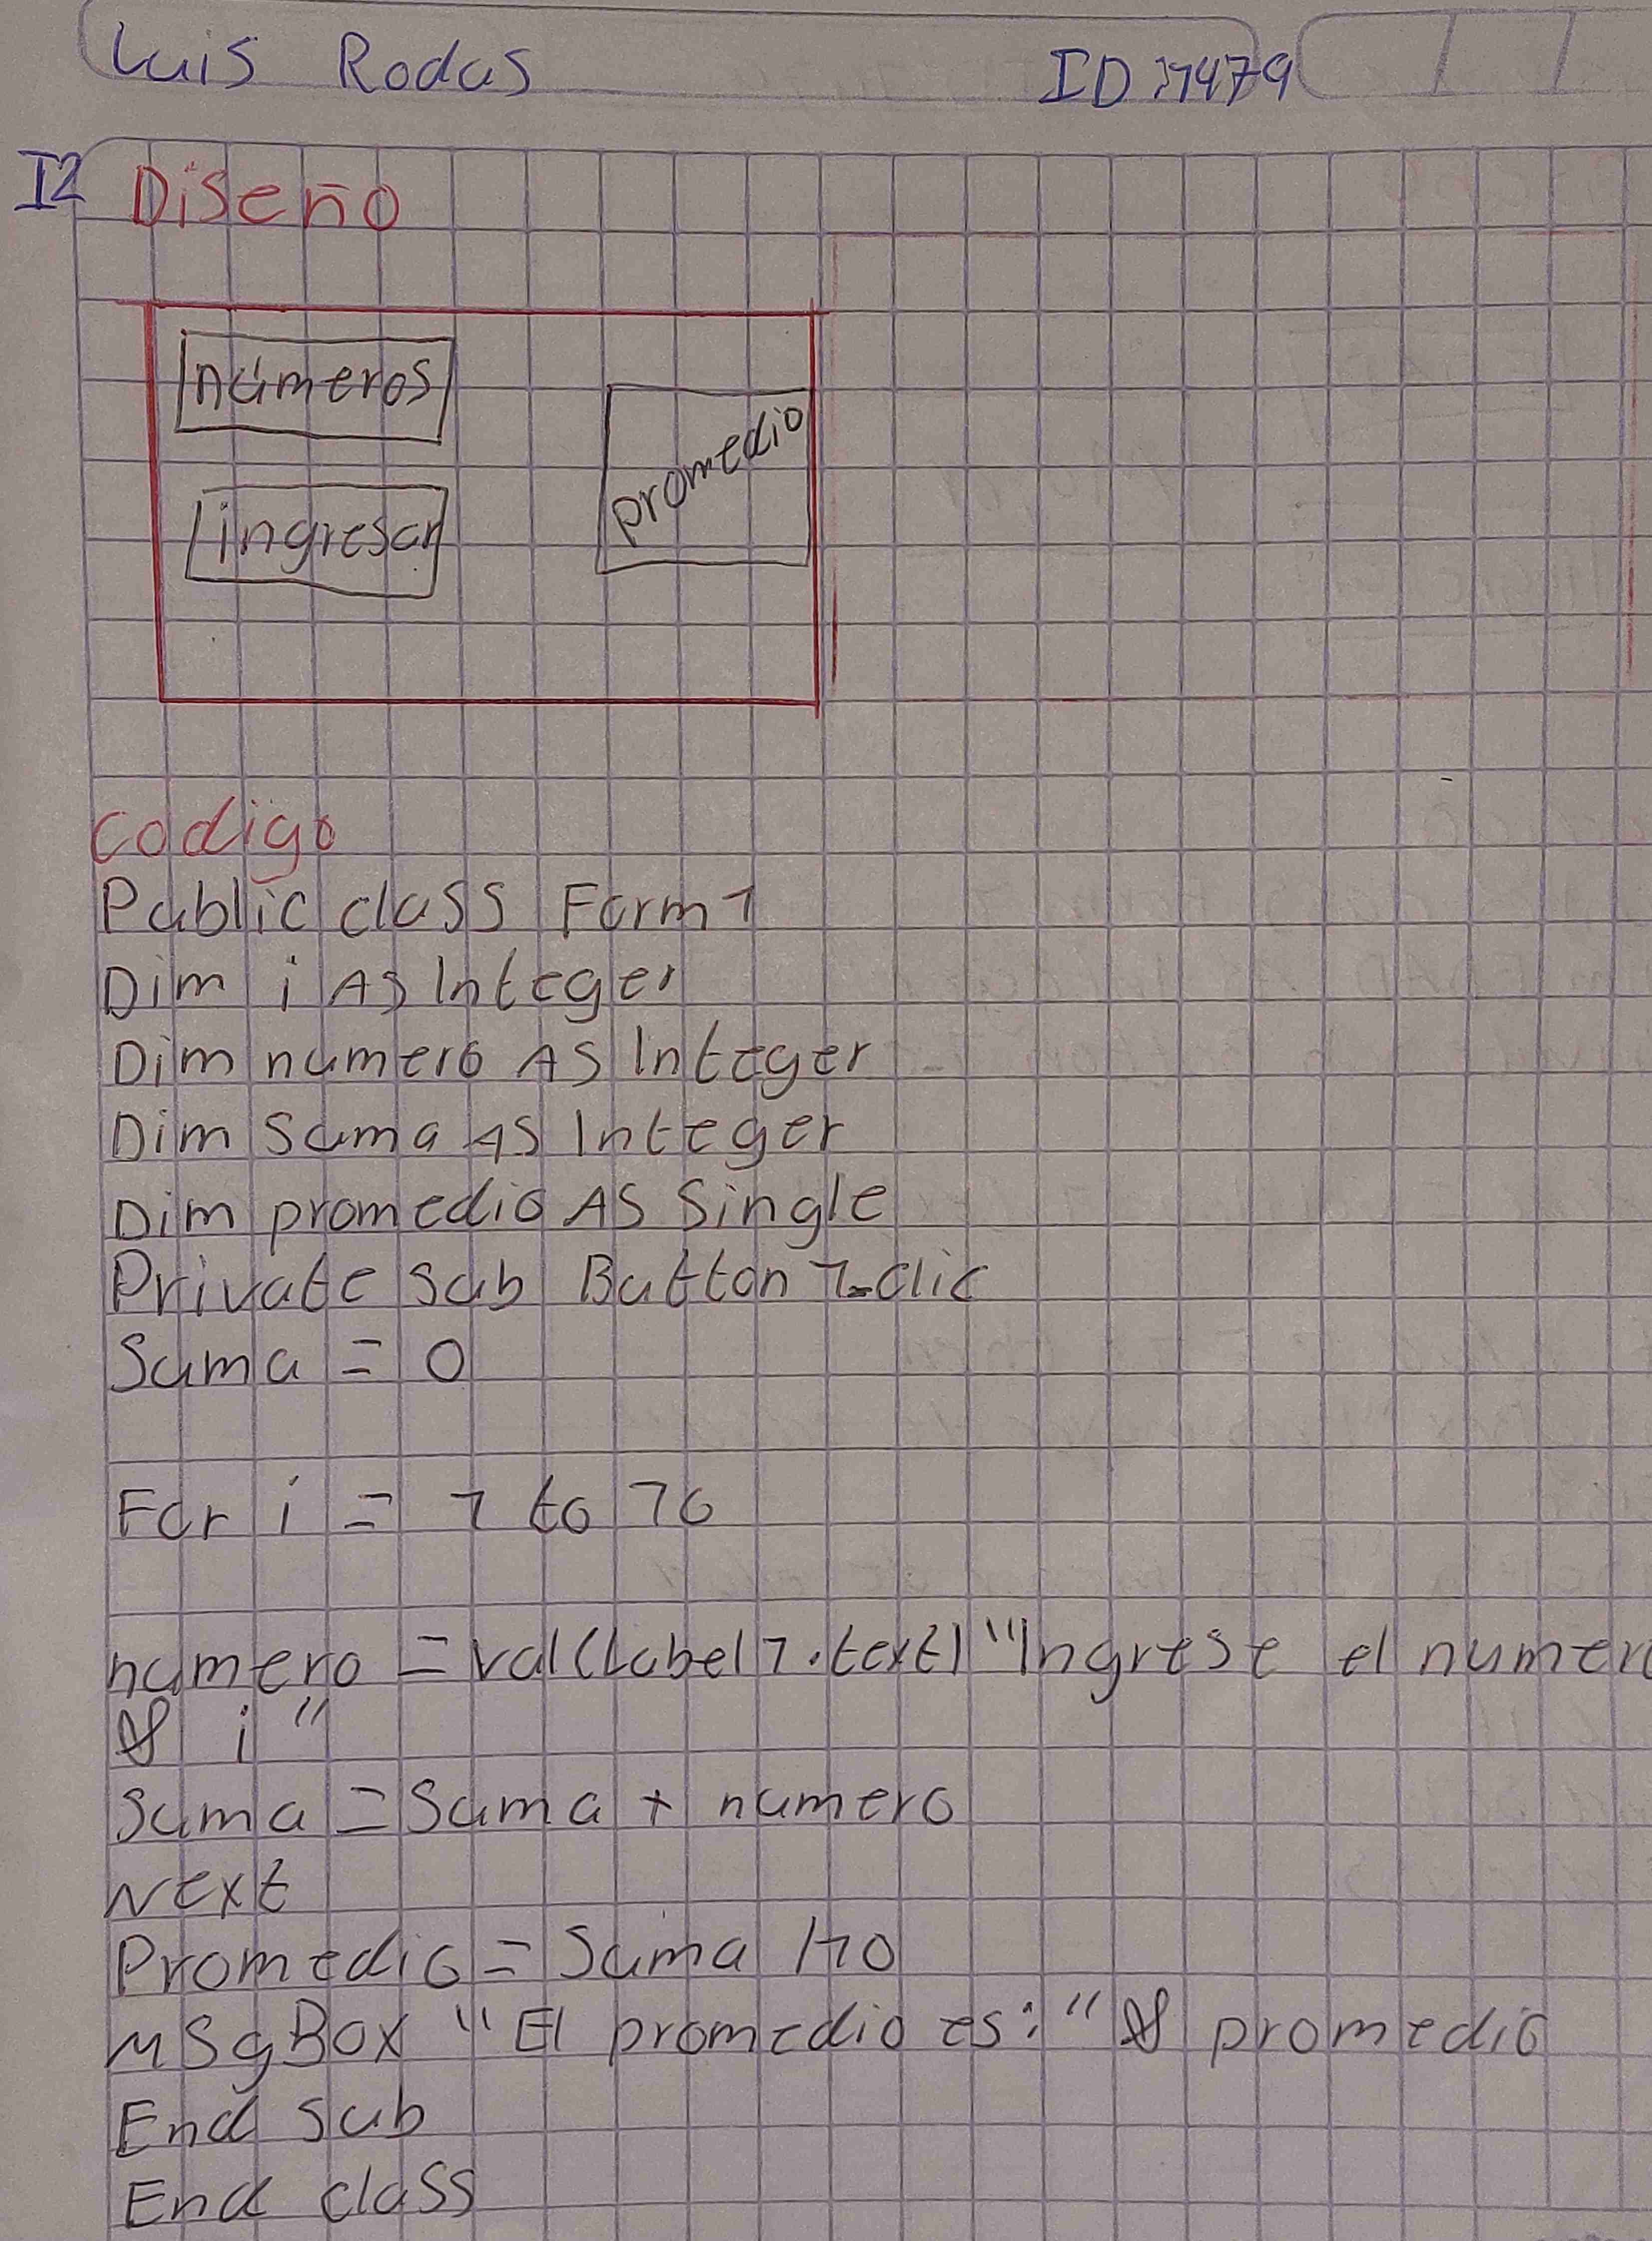 Luis Rodas ID:1479
I2 Diseño
números
ingresar
promedio
codigo
Public class Form1
Dim i As Integer
Dim numero As Integer
Dim Suma AS Integer
Dim promedio AS Single
Private Sub Button1_clic
Suma = 0
For i = 1 to 10
numero = val(Label1.text) "Ingrese el numero
& i"
Suma = Suma + numero
Next
Promedio = Suma /10
MSgBox "El promedio es:" & promedio
End Sub
End class